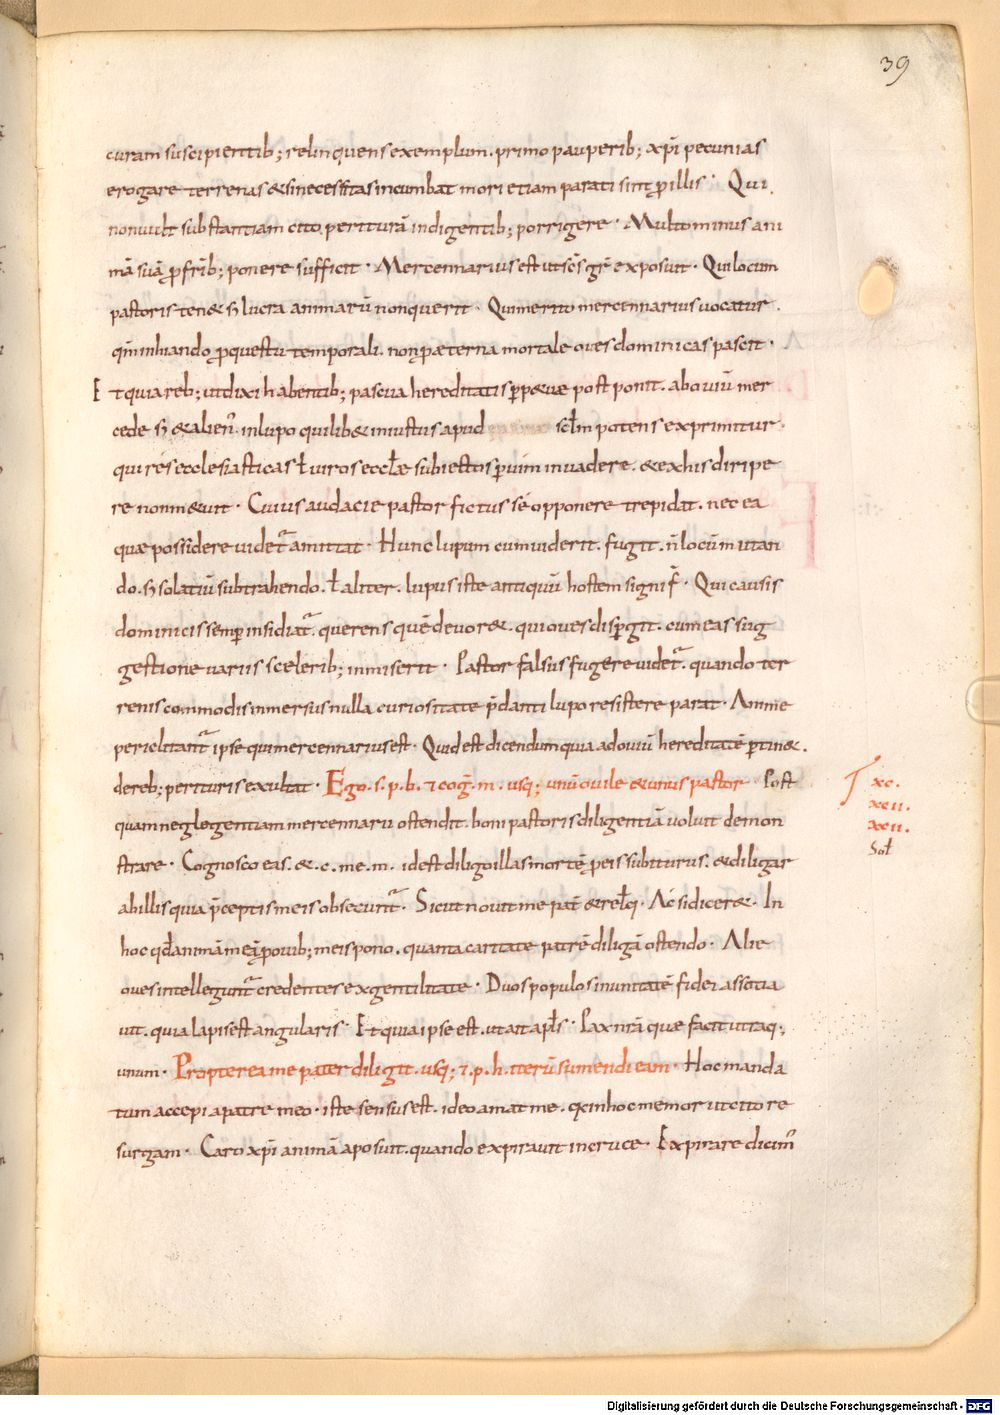 39
curam suscipientib; relinquens exemplum. primo pauperib; xp̄i pecunias
erogare terrenas & si necessitas incumbat mori etiam parati sint ꝓ illis · Qui
non uult substantiam cito periturā indigentib; porrigere · Multominus ani
mā suā ꝓ fr̄ib; ponere sufficit · Mercennarius est ut sc̄s gr̄ exposuit · Qui locum
pastoris ten& s; lucra animarū non querit · Qui merito mercennarius uocatur ·
qm̄ inhiando ꝓ questu temporali. non ꝓ æterna mortale oues dominicas pascit ·
Et quia reb; ut dixi habentib; pascua hereditatis ꝑp&uæ postponit. ab ouiū mer
cede s; & alien̄. in lupo quilib& iniustus apud sc̄lm potens exprimitur ·
qui res ecclesiasticas ł uiros eccłæ subiectos ꝑ uim inuadere. & ex his diripe
re non m&uit · Cuius audacie pastor fictus se opponere trepidat. nec ea
quæ possidere uidet᷑ amittat · Hunc lupum cum uiderit. fugit. n̄ locūm utan
do. s; solatiū subtrahendo. ł aliter. lupus iste antiquū hostem signif̄ · Qui causis
dominicis semꝑ insidiat᷑. querens quē deuor&. qui oues disꝑgit. cum eas sug
gestione uariis scelerib; inmiserit · Pastor falsus fugere uidet᷑. quando ter
renis commodis immersus nulla curiositate p̄danti lupo resistere parat · Anime
periclitant᷑ ipse qui mercennarius est · Quid est dicendum quia ad ouiū hereditatē ꝑtin&.
de reb; perituris exultat · Ego. s. p. b. & cog̅. m. usq; unū ouile & unus pastor · Post
xc.
xcii.
xcii.
Soł
quam neglegentiam mercennarii ostendit. boni pastoris diligentiā uoluit demon
strare · Cognosco eas. &. c. me. m. id est diligo illas mortē ꝓ eis subiturus. & diligar
ab illis quia p̄ceptis meis obsecunt᷑ · Sicut nouit me pat̄ & relq̄ · Ac si dicer& · In
hoc qd̄ animā meā ꝓ ouib; meis pono. quanta caritate patrē diligā ostendo · Alie
oues intellegunt᷑ credentes ex gentilitate · Duos populos in unitatē fidei assotia
uit. quia lapis est angularis · Et quia ipse est. ut ait apłs · Pax nr̄a quæ facit utraq;
unum · Propterea me pater diligit. usq; &. p. h. iterū sumendi eam · Hoc manda
tum accepi a patre meo · iste sensus est. ideo amat me. q̄a in hoc memor ut cito re
surgam · Caro xp̄i animā aposuit. quando expirauit in cruce · Expirare dicim᷒
Digitalisierung gefördert durch die Deutsche Forschungsgemeinschaft - DFG